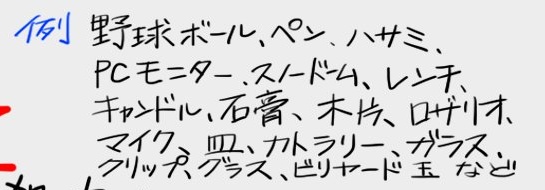 例 野球ボール、ペン、ハサミ、
PCモニター、スノードーム、レンチ、
キャンドル、石膏、木片、ロザリオ、
マイク、皿、カトラリー、ガラス、
クリップ、グラス、ビリヤード玉 など